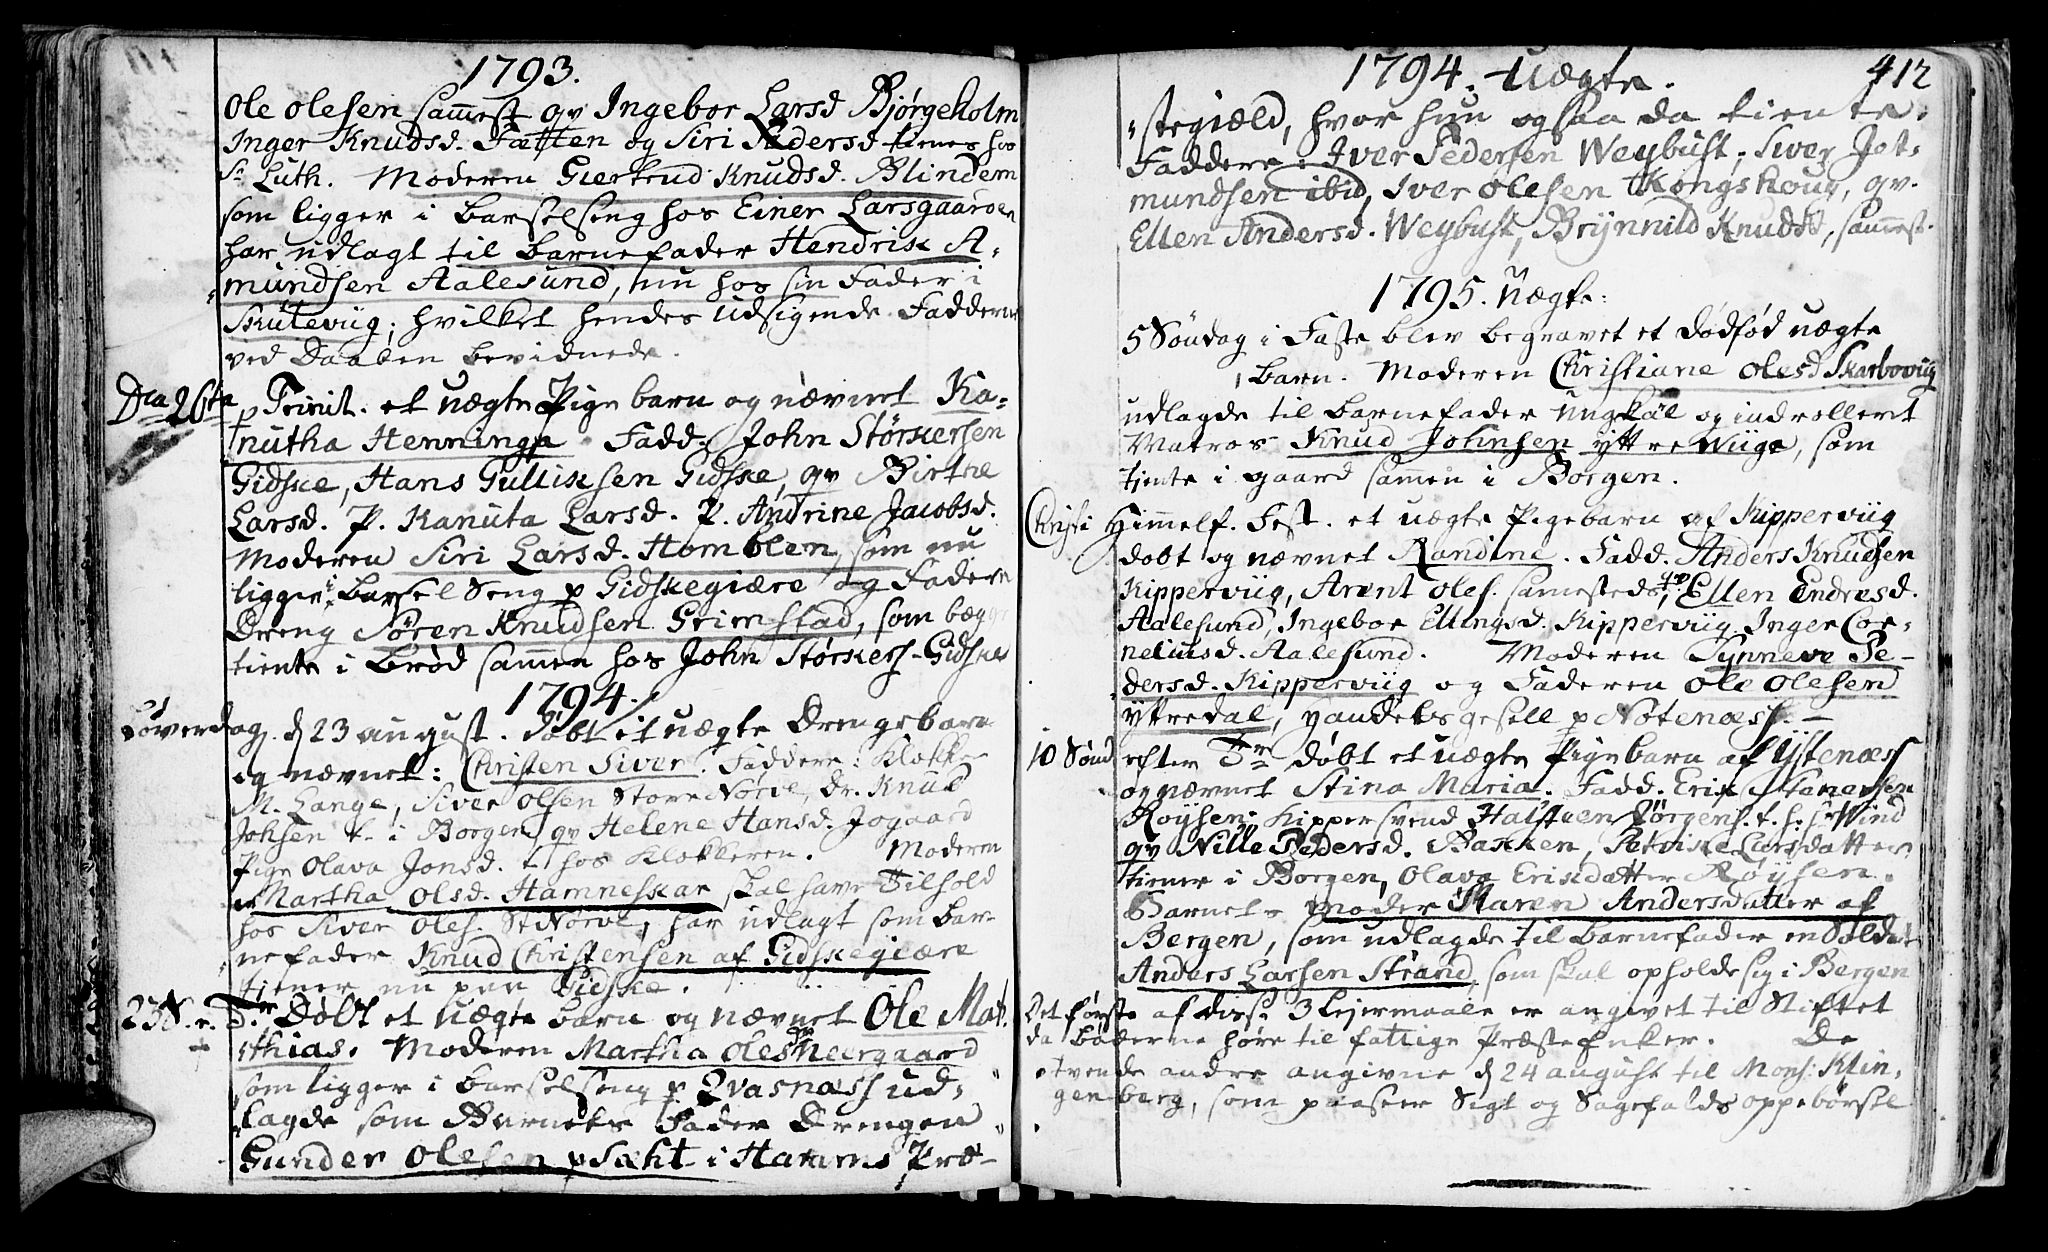 1793.
Ole Olesen sam̄est qv Ingebor Larsd Bjørgeholm
Inger Knudsd. Fætten og Siri Pedersd tienes hos
Sr Luth. Moderen Giertrud Knudsd. Blindem
som ligger i Barselseng hos Einer Larsgaarden
har udlagt til Barnefader Hendrik A-
mundsen Aalesund, nu hos sin Fader i
Skuteviig; hvilket hendes Udsigende Fadderne
ved Daaben bevidnede.
Dca 26ta p Trinit. et uægte Pige barn og nævnet Ka-
nutha Henninga Fadd. John Størkersen
Gidske, Hans Gulliksen Gidske, qv Birthe
Larsd. P. Kanuta Larsd. P. Andrine Jacobsd.
Moderen Siri Larsd. Homblen, som nu
ligger i Barsel Seng p Gidskegiære og Faderen
Dreng Søren Knudsen Grimstad, som begge
tiente i Brød sammen hos John Størkers. Gidske
1794.
Löverdag d 23 august. døbt et uægte Drengebarn
og nævnet: Christen Siver. Faddere: Klokker
M. Lange, Siver Olsen Store Nørve, Dr. Knud
Johsen t. i Borgen qv Helene Hansd. Jogaard
Pige Olava Jonsd. t hos Klokkeren. Moderen
er Martha Olsd. Hamneskar, skal have Tilhold
hos Siver Oles. St Nørve, har udlagt som Bar-
nefader Knud Christensen af Gidskegiære
tiener nu paa Gidske.
23 S. e. Tr. Døbt et uægte barn og nævnet Ole Mat-
thias. Moderen Martha Olesdr Neergaard
som ligger i barselseng p Qvasnæss ud-
lagde som Barnets Fader Drengen
Gunder Olesen p Sæht i Hamms Præ-
1794. Uægte. 412
stegiæld, hvor hun ogsaa da tiente.
Faddere: Iver Pedersen Weybust, Siver Jet-
mundsen ibid, Iver Olesen Kongshoug, qv.
Ellen Andersd. Weybust, Brynnild Knudsd, sam̄est.
1795. Uægte:
5 Söndag i Faste blev begravet et dødfød uægte
barn. Moderen Christiane Olesd Skarboviig
udlagde til barnefader Ungkal og indrolleret
Matros Knud Johnsen yttre Wiige, som
tiente i gaard sam̄en i Borgen.
Christi Himmelf. Fest. et uægte Pigebarn af Kipperviig
døbt og nævnet Randine. Fadd. Anders Knudsen
Kipperviig, Arent Oles. sammesteds, qv Ellen Endresd.
Aalesund, Ingebor Ellingsd. Kipperviig Inger Cor-
neliusd. Aalesund. Moderen Synneve Pe-
dersd. Kipperviig og Faderen Ole Olesen
Ytredal, Handels gesell p Nøtenæss.
10 Sönd efter Tr døbt et uægte Pigebarn af Ystenæss
og nævnet Stina Maria. Fadd. Erik
Röysen. Kippersvend Halsteen Jörgens. t. h. Sr Wind
qv Nille Pedersd. Bakken, Petrike Larsdatter
tiener i Borgen, Olava Eriksdatter Røysen.
Barnets moder Karen Andersdatter af
Bergen, som udlagde til barnefader en Soldat
Anders Larsen Strand, som skal opholde sig i Bergen
Det første af disse 3 Lejermaale er angivet til Stiftet
da bøderne høre til fattige Præste Enker. De
tvende andre angivne d 24 august til Mons: Klin-
genberg, som paaseer Sigt og Sagefalds oppebørsel